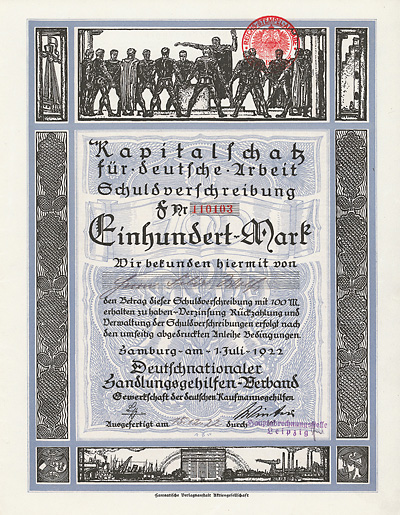 Kapitalschatz
für · deutsche · Arbeit
Schuldverschreibung
F Nr 110103
Einhundert-Mark
Wir bekunden hiermit von
den Betrag dieser Schuldverschreibung mit 100 M.
erhalten zu haben-Verzinsung Rückzahlung und
Verwaltung der Schuldverschreibungen erfolgt nach
den umseitig abgedruckten Anleihe Bedingungen.
Hamburg - am - 1 · Juli - 1922
Deutschnationaler
Handlungsgehilfen-Verband
Gewerkschaft der deutschen Kaufmannsgehilfen
Ausgefertigt am durch Hauptabrechnungsstelle
Leipzig
Hanseatische Verlagsanstalt Aktiengesellschaft